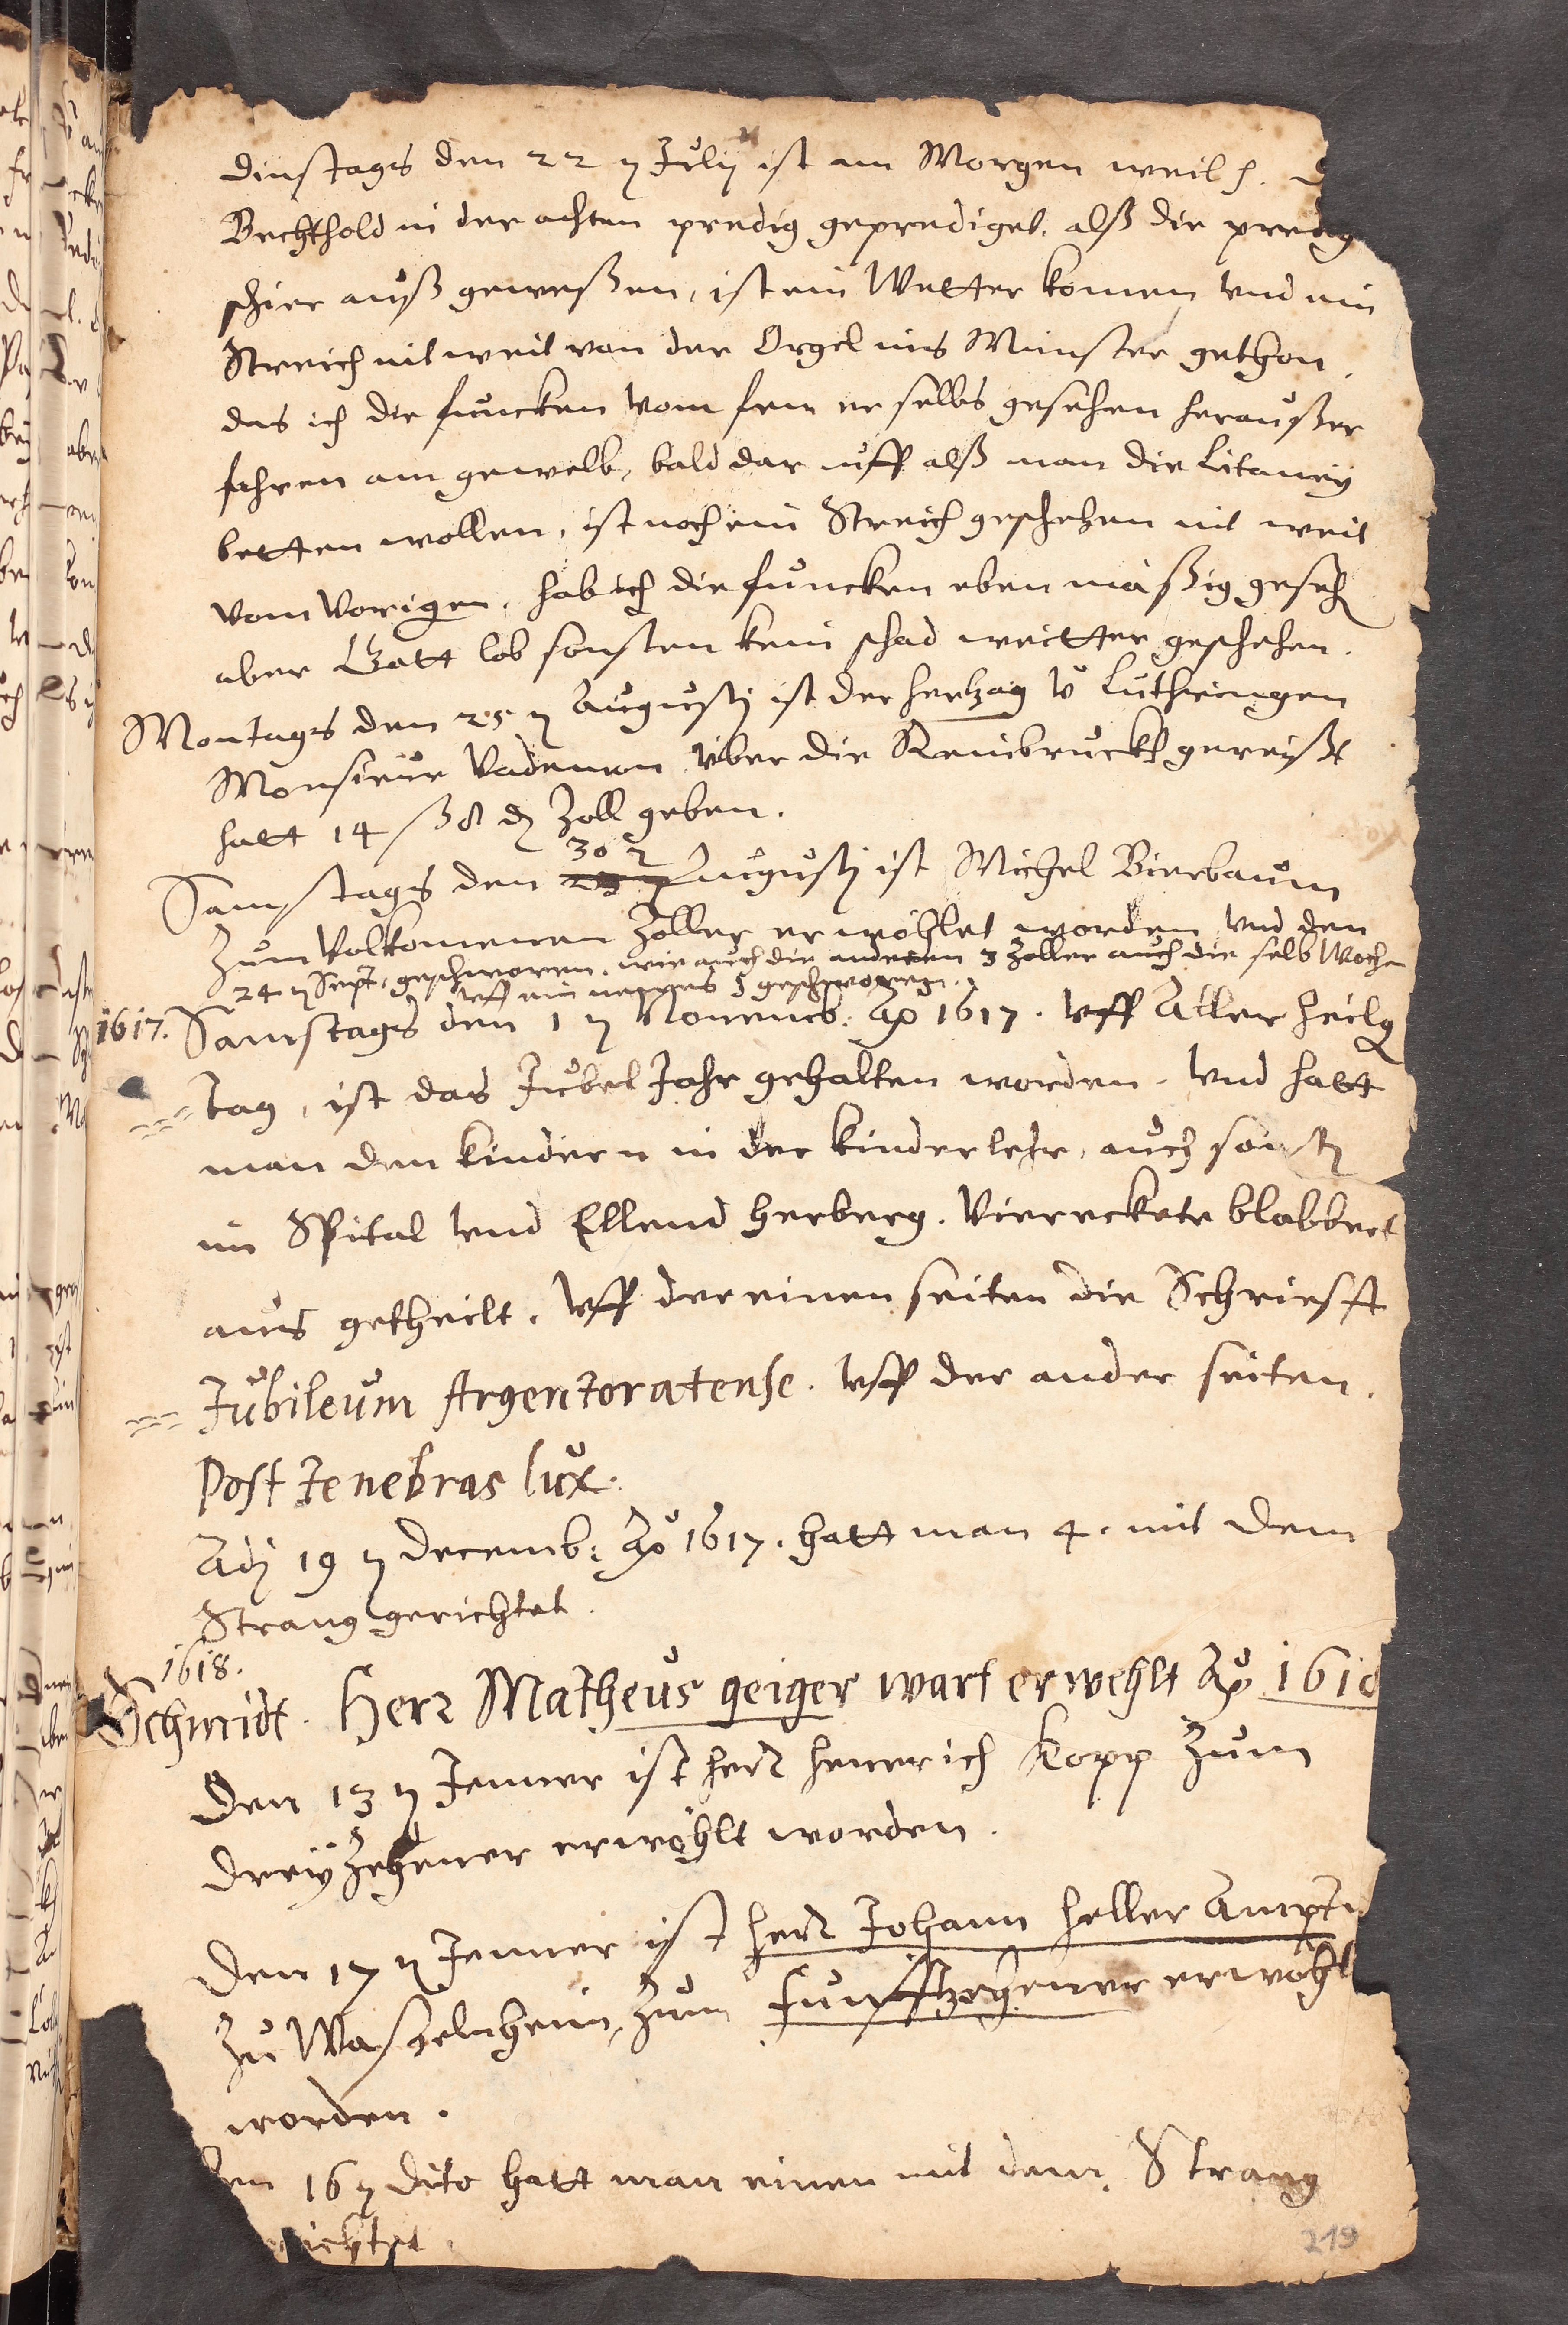 dinstags den 22 n Julij ist am Morgen weil h.
Bechthold in der achten predig geprediget. alß die predig
schier auß geweßen, ist ein Wetter komen vnd ein
Streich nit weit von der Orgel ins Münster gethon.
das ich die funcken vom feir selbs gesehen heraußer
fahren am gewelb, bald dar uff alß man die Litaneÿ
betten wollen, ist noch ein Streich geschehen nit weit
vom Vorigen, hab ich die funcken eben mäßig geseh
aber Gott lob sonsten kein schad weitter geschehen.
Montags den 25 n Augusti ist der hertzog v Luthringen
Monsieur Vademon über die Reinbruckh gereißt
hatt 14 ß 8 d Zoll geben.
30 n
Samstags den Augusti ist Michel Bierbaum
Zum Volkomenen Zoller erwöhlet worden vnd den
24 n Sept. geschworen. wie auch die anderen 3 Zoller auch die selb Wochen
vff ein neyes geschworen.
1617. Samstags den 1 n Nouemb: Ao 1617. vff Aller heilg
tag, ist das Jubel Jahr gehalten worden. vnd hatt
man den kindern in der kinderlehr, auch sonst
im Spital vnd Ellend herberg. Viereckete blabbert
aus getheilt. vff der einen seiten die Schriefft
Jubileum Argentoratense. vff der ander seiten.
Post tenebras lux.
Adj 19 n decemb: Ao 1617. hatt man 4. mit dem
Strang gerichtet.
1618.
Schmidt. Herr Matheus geiger wart erwehlt Ao 1618
Den 13 n Jenner ist herr henerich Kopp Zum
dreyZehener erwöhlt worden.
Den 17 n Jenner ist herr Johann heller Ampt
Zu Waßelnheim, Zum funfftzehener erwöhl
worden.
en 16 n dito hatt man einen mit dem Strang
richtet.
219